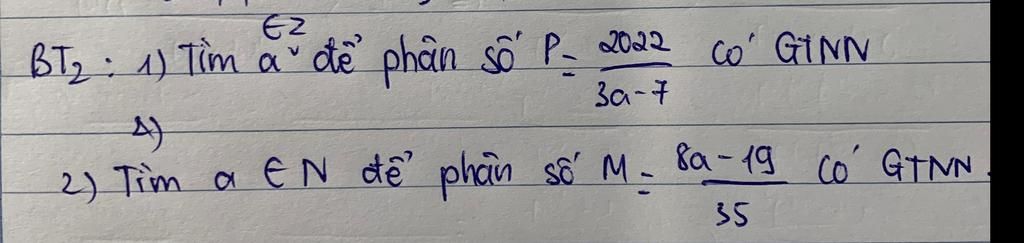 BT₂ : 1) Tìm a ∈Z để phân số P = 2022 / 3a-7 có GTNN
2) Tìm a ∈ N để phân số M = 8a-19 / 35 có GTNN.